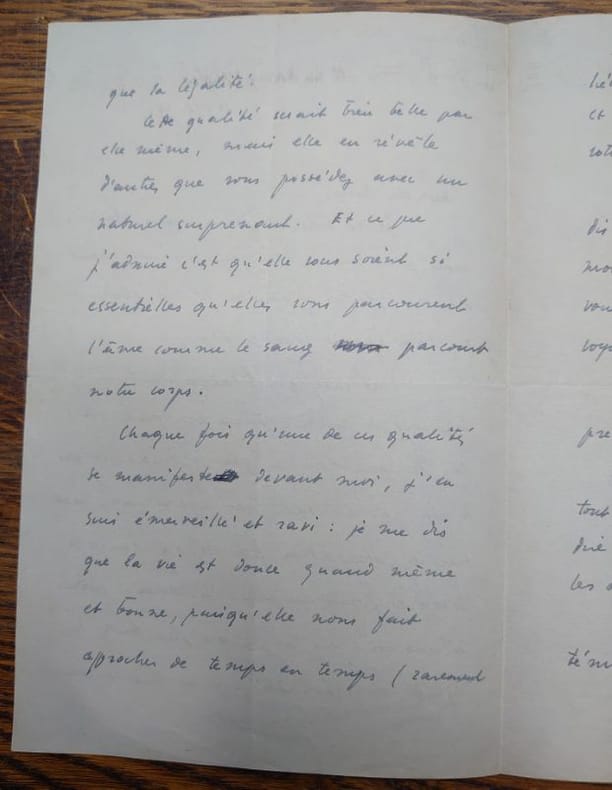 que la légalité.
Cette qualité serait très belle par
elle même, mais elle en révèle
d'autres que vous possédez avec un
naturel surprenant. Et ce que
j'admire c'est qu'elles vous soient si
essentielles qu'elles vous parcourent
l'âme comme le sang parcourt
notre corps.
Chaque fois qu'une de ces qualités
se manifeste devant moi, j'en
suis émerveillé et ravi : je me dis
que la vie est douce quand même
et bonne, puisqu'elle nous fait
approcher de temps en temps (rarement
et
dis
pre
tout
les